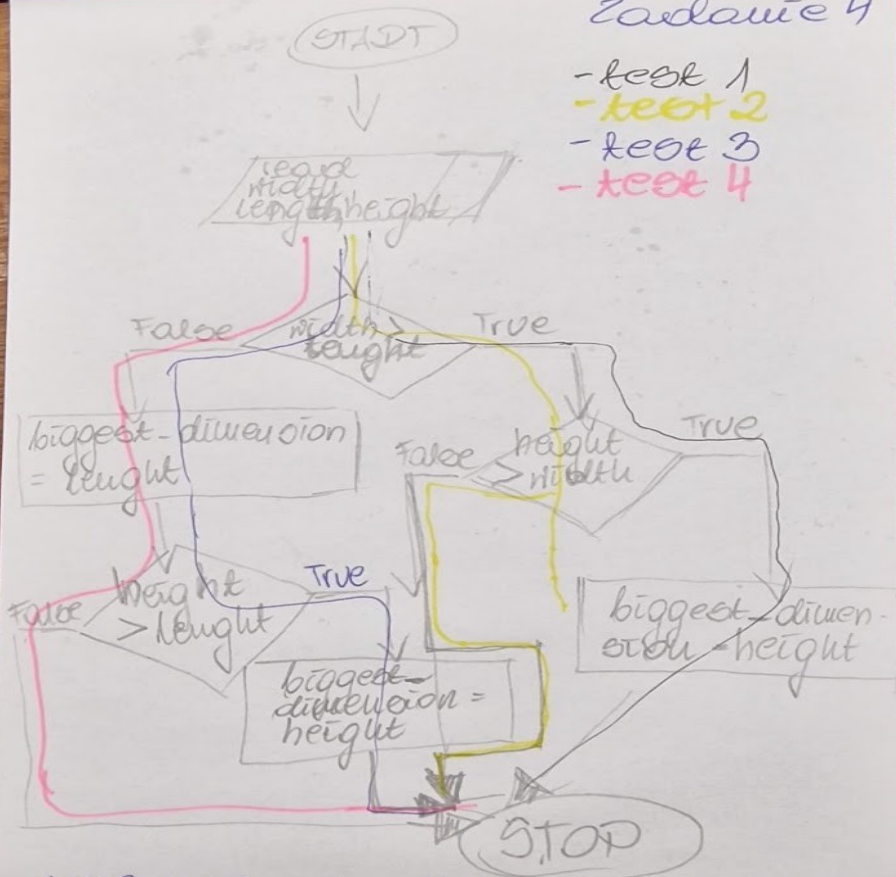 Zadanie 4
START
- test 1
- test 2
- test 3
- test 4
read
width,
length, height
False
width >
lenght
True
biggest_dimension
= lenght
False
height
> width
True
False
height
> lenght
True
biggest_dimen-
sion = height
biggest_
dimension =
height
STOP